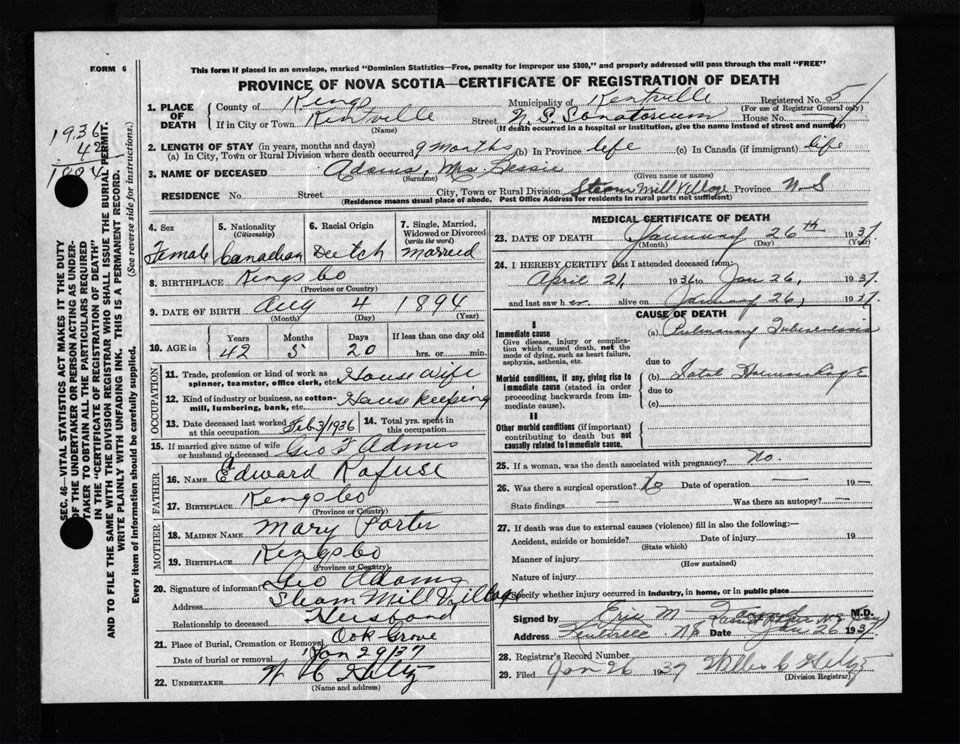 FORM 6
This form if placed in an envelope, marked "Dominion Statistics—Free, penalty for improper use $300," and properly addressed will pass through the mail "FREE"
PROVINCE OF NOVA SCOTIA—CERTIFICATE OF REGISTRATION OF DEATH
1936
42
1894
SEC. 46—VITAL STATISTICS ACT MAKES IT THE DUTY
OF THE UNDERTAKER OR PERSON ACTING AS UNDER-
TAKER TO OBTAIN ALL THE PARTICULARS REQUIRED
IN THE "CERTIFICATE OF REGISTRATION OF DEATH"
AND TO FILE THE SAME WITH THE DIVISION REGISTRAR WHO SHALL ISSUE THE BURIAL PERMIT.
WRITE PLAINLY WITH UNFADING INK. THIS IS A PERMANENT RECORD.
Every item of information should be carefully supplied. (See reverse side for instructions.)
1. PLACE OF DEATH County of Kings Municipality of Kentville Registered No. 5
(For use of Registrar General only)
If in City or Town Kentville Street N.S. Sanatorium House No.
(Name) (If death occurred in a hospital or institution, give the name instead of street and number)
2. LENGTH OF STAY (in years, months and days)
(a) In City, Town or Rural Division where death occurred 9 months (b) In Province life (c) In Canada (if immigrant) life
3. NAME OF DECEASED Adams, Mrs Bessie
(Surname) (Given name or names)
RESIDENCE No. Street City, Town or Rural Division Steam Mill Village Province N S
(Residence means usual place of abode. Post Office Address for residents in rural parts not sufficient)
4. Sex Female
5. Nationality (Citizenship) Canadian
6. Racial Origin Deutch
7. Single, Married, Widowed or Divorced (write the word) Married
8. BIRTHPLACE Kings Co
(Province or Country)
9. DATE OF BIRTH Aug 4 1894
(Month) (Day) (Year)
10. AGE Years 42 Months 5 Days 20 If less than one day old hrs. or min.
OCCUPATION
11. Trade, profession or kind of work as spinner, teamster, office clerk, etc. House wife
12. Kind of industry or business, as cotton-mill, lumbering, bank, etc. House Keeping
13. Date deceased last worked at this occupation Feb 3/1936 14. Total yrs. spent in this occupation
15. If married give name of wife or husband of deceased Geo F Adams
FATHER
16. NAME Edward Rafuse
17. BIRTHPLACE Kings Co
(Province or Country)
MOTHER
18. MAIDEN NAME Mary Porter
19. BIRTHPLACE Kings Co
(Province or Country)
20. Signature of informant Geo Adams
Address Steam Mill Village
Relationship to deceased Husband
21. Place of Burial, Cremation or Removal Oak Grove
Date of burial or removal Jan 29/37
22. UNDERTAKER W C Hiltz
(Name and address)
MEDICAL CERTIFICATE OF DEATH
23. DATE OF DEATH January 26th 1937
(Month) (Day) (Year)
24. I HEREBY CERTIFY that I attended deceased from:
April 21 1936 to Jan 26, 1937.
and last saw her alive on January 26, 1937
CAUSE OF DEATH
I
Immediate cause
Give disease, injury or complication which caused death, not the mode of dying, such as heart failure, asphyxia, asthenia, etc.
(a) Pulmonary Tuberculosis
due to
Morbid conditions, if any, giving rise to immediate cause (stated in order proceeding backwards from immediate cause).
(b) Fatal Hemorrhage
due to
(c)
II
Other morbid conditions (if important) contributing to death but not causally related to immediate cause.
25. If a woman, was the death associated with pregnancy? No.
26. Was there a surgical operation? No Date of operation — 19—
State findings — Was there an autopsy? —
27. If death was due to external causes (violence) fill in also the following:—
Accident, suicide or homicide? Date of injury 19
(State which)
Manner of injury
(How sustained)
Nature of injury
Specify whether injury occurred in industry, in home, or in public place
Signed by Eric M. M.D.
Address Kentville N.S. Date Jan 26 1937
28. Registrar's Record Number
29. Filed Jan 26 1937 Hiltz
(Division Registrar)